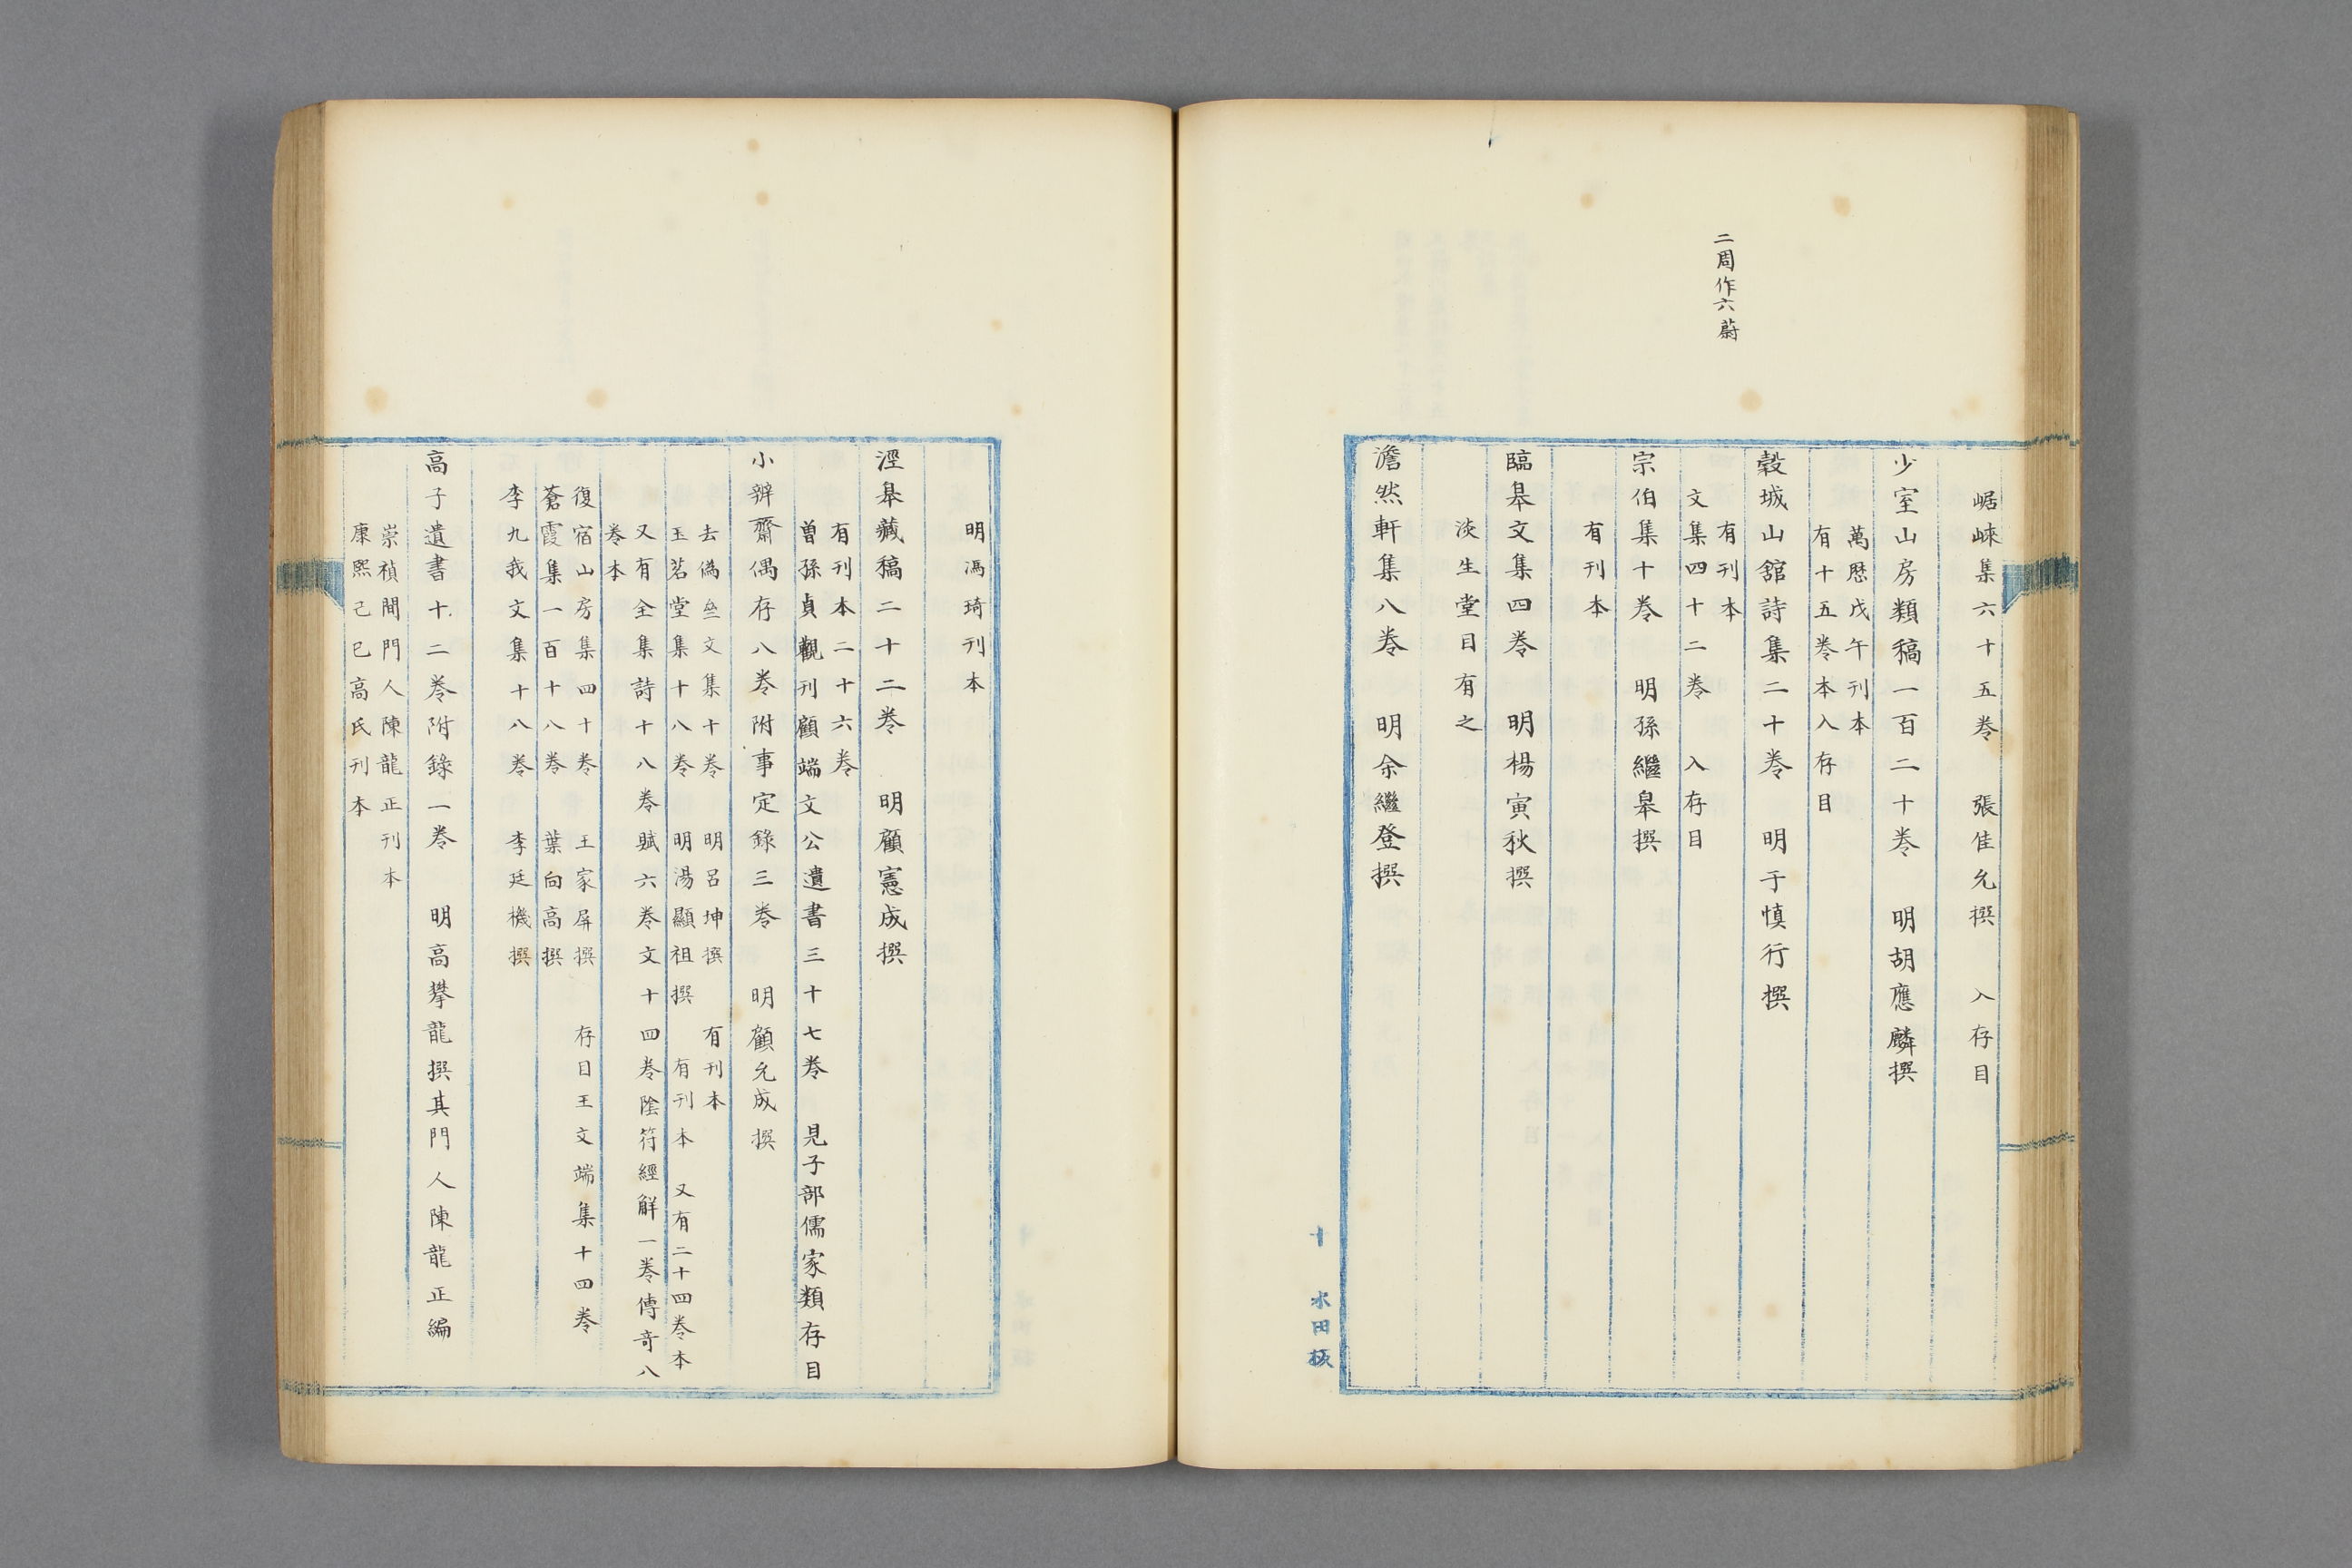 二周作六蔚
崛崍集六十五卷　張佳允撰　入存目
少室山房類稿一百二十卷　明胡應麟撰
萬歷戊午刊本
有十五卷本入存目
穀城山館詩集二十卷　明于慎行撰
有刊本
文集四十二卷　入存目
宗伯集十卷　明孫繼皋撰
有刊本
臨皋文集四卷　明楊寅秋撰
淡生堂目有之
澹然軒集八卷　明余繼登撰
十　水田板
明馮琦刊本
涇皋藏稿二十二卷　明顧憲成撰
有刊本二十六卷
曾孫貞觀刊顧端文公遺書三十七卷　見子部儒家類存目
小辨齋偶存八卷附事定錄三卷　明顧允成撰
去偽齋文集十卷　明呂坤撰　有刊本
玉茗堂集十八卷　明湯顯祖撰　有刊本　又有二十四卷本
又有全集詩十八卷賦六卷文十四卷陰符經解一卷傳奇八
卷本
復宿山房集四十卷　王家屏撰　存目王文端集十四卷
蒼霞集一百十八卷　葉向高撰
李九我文集十八卷　李廷機撰
高子遺書十二卷附錄一卷　明高攀龍撰其門人陳龍正編
崇禎間門人陳龍正刊本
康熙己巳高氏刊本